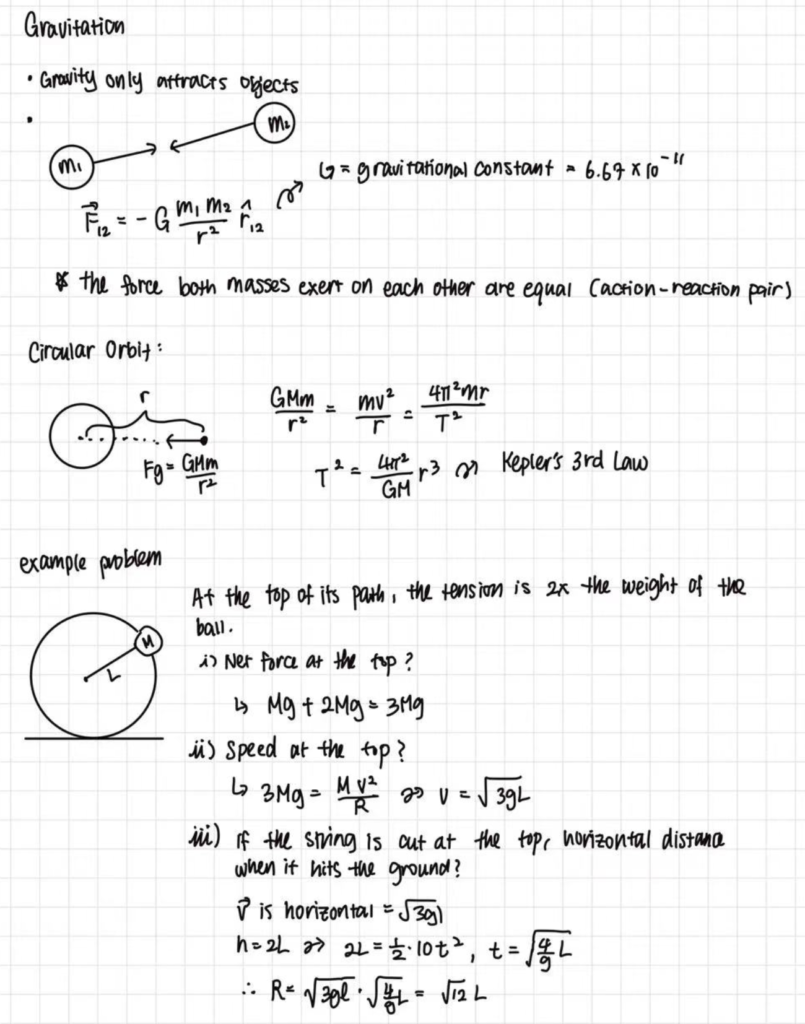 Gravitation
• Gravity only attracts objects
•
m₁ m₂
G = gravitational constant = 6.67 × 10⁻¹¹
F⃗₁₂ = - G m₁ m₂ / r² r̂₁₂
* the force both masses exert on each other are equal (action-reaction pair)
Circular Orbit:
r
GMm / r² = mv² / r = 4π²mr / T²
Fg = GMm / r²
T² = 4π² / GM r³ Kepler's 3rd Law
example problem
At the top of its path, the tension is 2x the weight of the
ball.
M
L
i) Net force at the top?
↳ Mg + 2Mg = 3Mg
ii) Speed at the top?
↳ 3Mg = M v² / R ⇒ v = √3gL
iii) If the string is cut at the top, horizontal distance
when it hits the ground?
v⃗ is horizontal = √3gl
h = 2L ⇒ 2L = 1/2 · 10t², t = √(4/g L)
∴ R = √3gl · √(4/g L) = √12 L